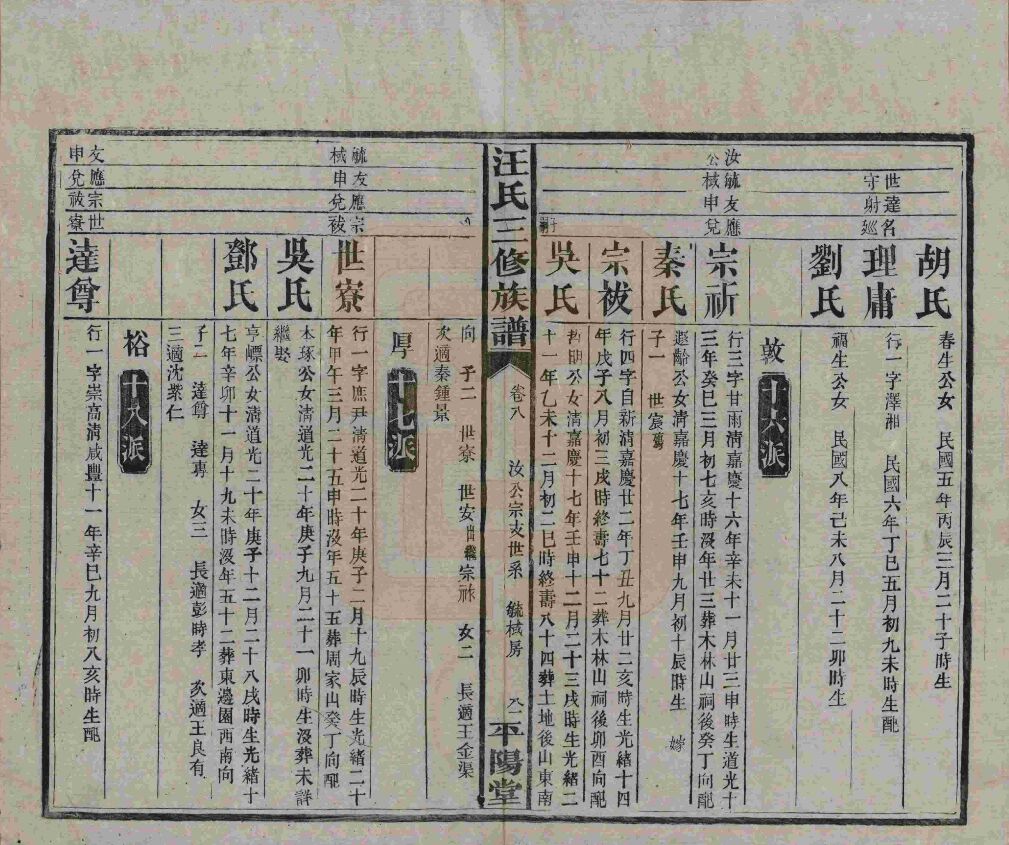 世達名
守射巡
胡氏
春生公女 民國五年丙辰三月二十子時生
理庸
行一字澤湘 民國六年丁巳五月初九未時生配
劉氏
福生公女 民國八年己未八月二十二卯時生
敦 十六派
汝毓友應
公棫申兌
宗祈
行三字甘雨清嘉慶十六年辛未十一月廿三申時生道光十
三年癸巳三月初七亥時没年廿三葬木林山祠後癸丁向配
秦氏
遐齡公女清嘉慶十七年壬申九月初十辰時生 嫁
子一 世宸殤
宗祓
行四字自新清嘉慶廿二年丁丑九月廿二亥時生光緒十四
年戊子八月初三戌時終壽七十二葬木林山祠後卯酉向配
吳氏
哲明公女清嘉慶十七年壬申十二月二十三戌時生光緒二
十一年乙未十二月初二巳時終壽八十四葬土地後山東南
汪氏三修族譜
卷八
汝公宗支世系 毓棫房
平陽堂
向 子二 世寮 世安出繼宗祚 女二 長適王金渠
次適秦鍾景
厚 十七派
毓友應宗
棫申兌祓
世寮
行一字庶尹清道光二十年庚子二月十九辰時生光緒二十
年甲午三月二十五申時没年五十五葬周家山癸丁向配
吳氏
本琢公女清道光二十年庚子九月二十一卯時生没葬未詳
繼娶
鄧氏
亨嶫公女清道光二十年庚子十二月二十八戌時生光緒十
七年辛卯十一月十九未時没年五十二葬東邊園西南向
子二 達尊 達專 女三 長適彭時孝 次適王良有
三適沈紫仁
裕 十八派
友應宗世
申兌祓寮
達尊
行一字崇高清咸豐十一年辛巳九月初八亥時生配